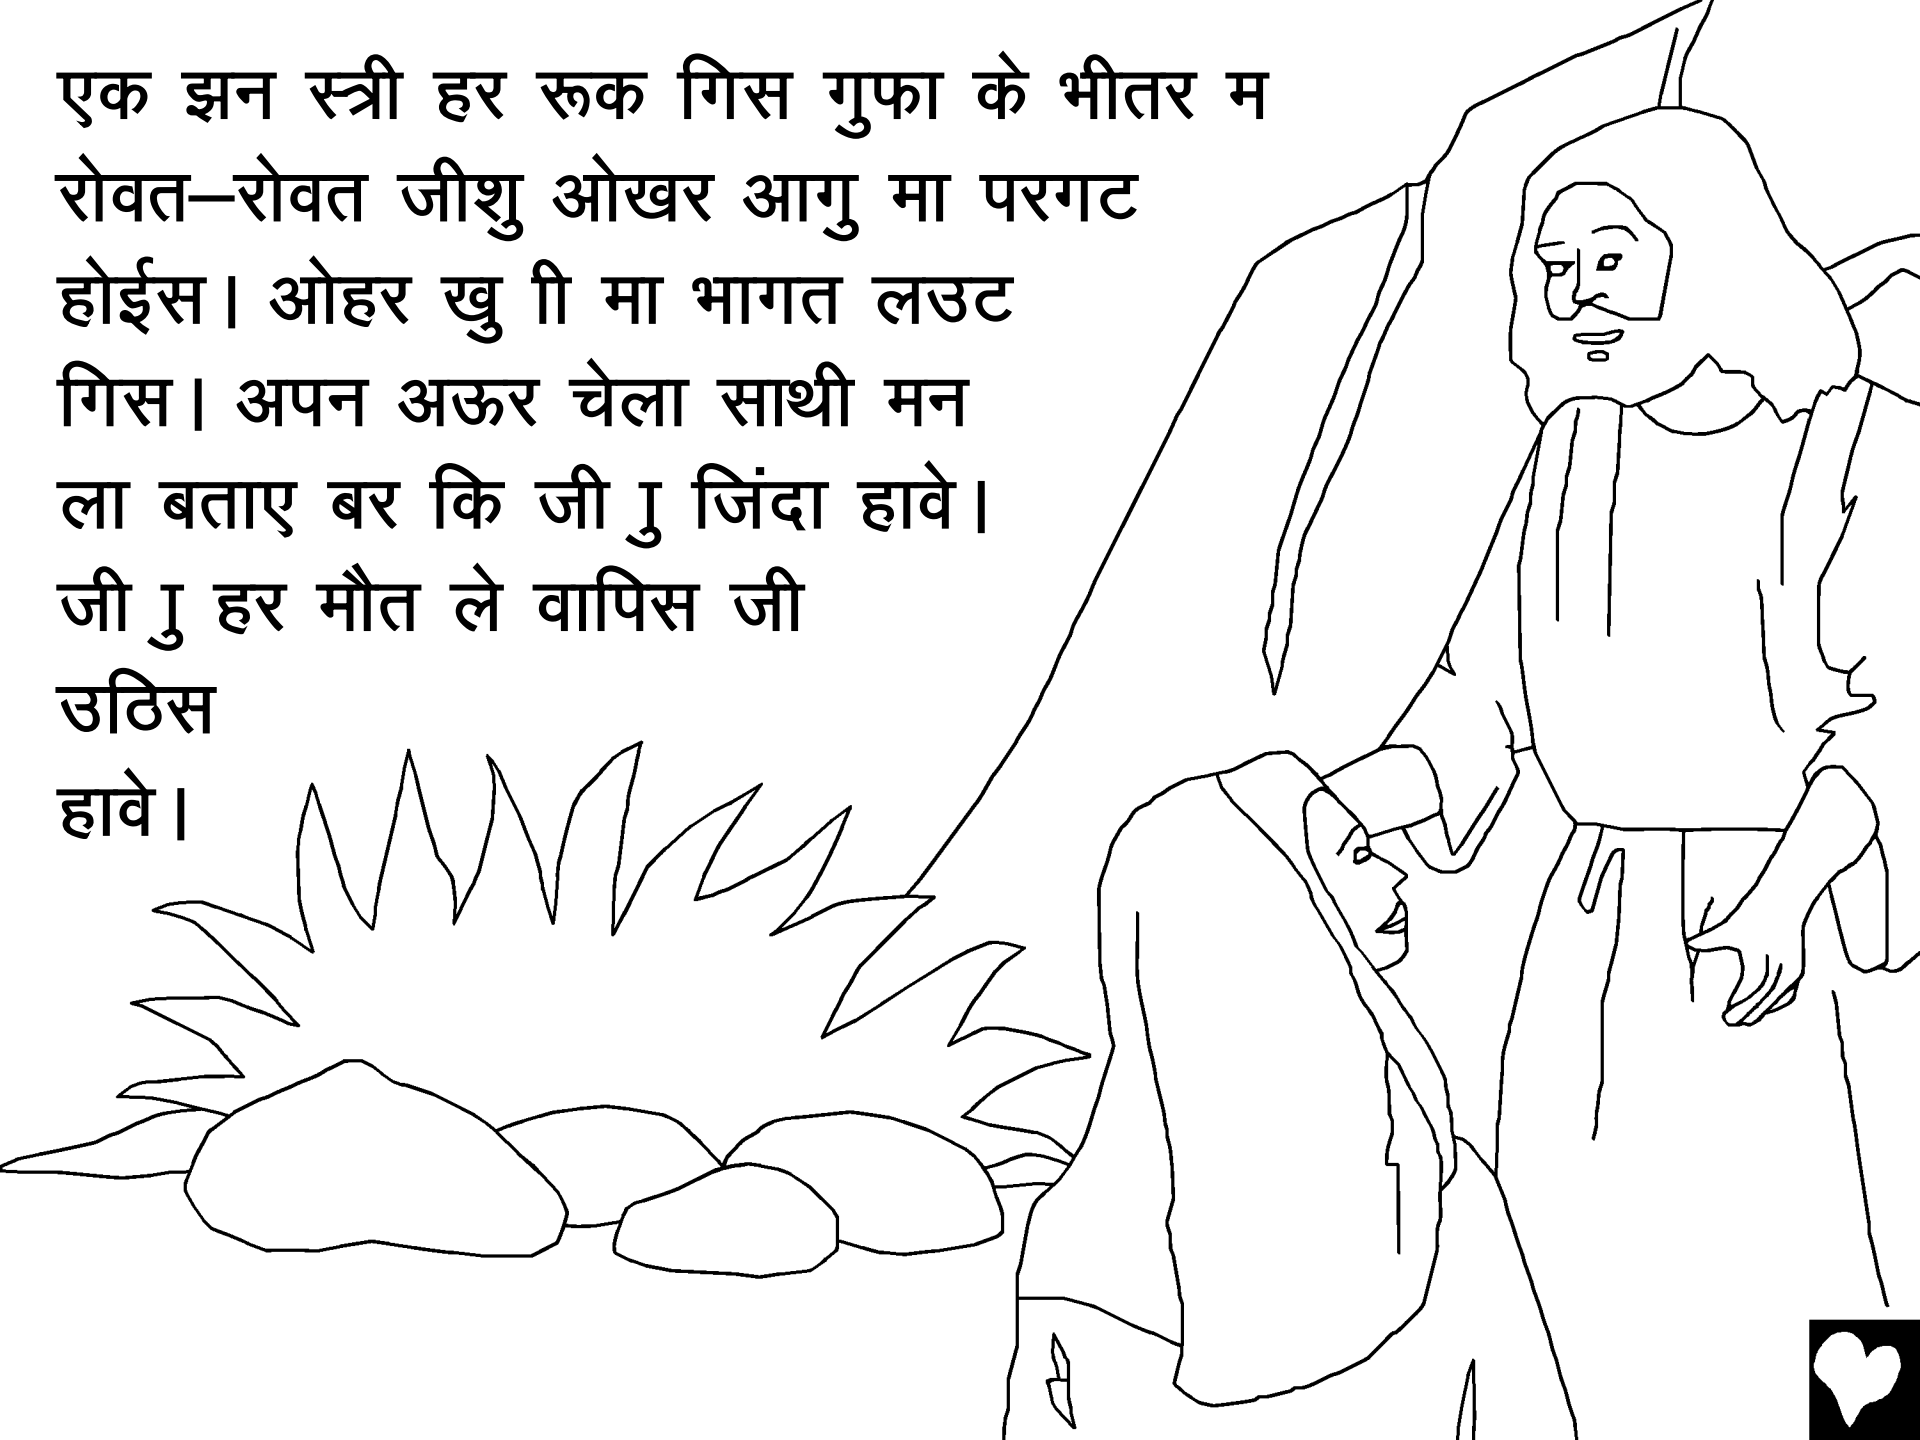 एक झन स्त्री हर रूक गिस गुफा के भीतर म
रोवत–रोवत जीशु ओखर आगु मा परगट
होईस। ओहर खु ाी मा भागत लउट
गिस। अपन अऊर चेला साथी मन
ला बताए बर कि जी ाु जिंदा हावे।
जी ाु हर मौत ले वापिस जी
उठिस
हावे।